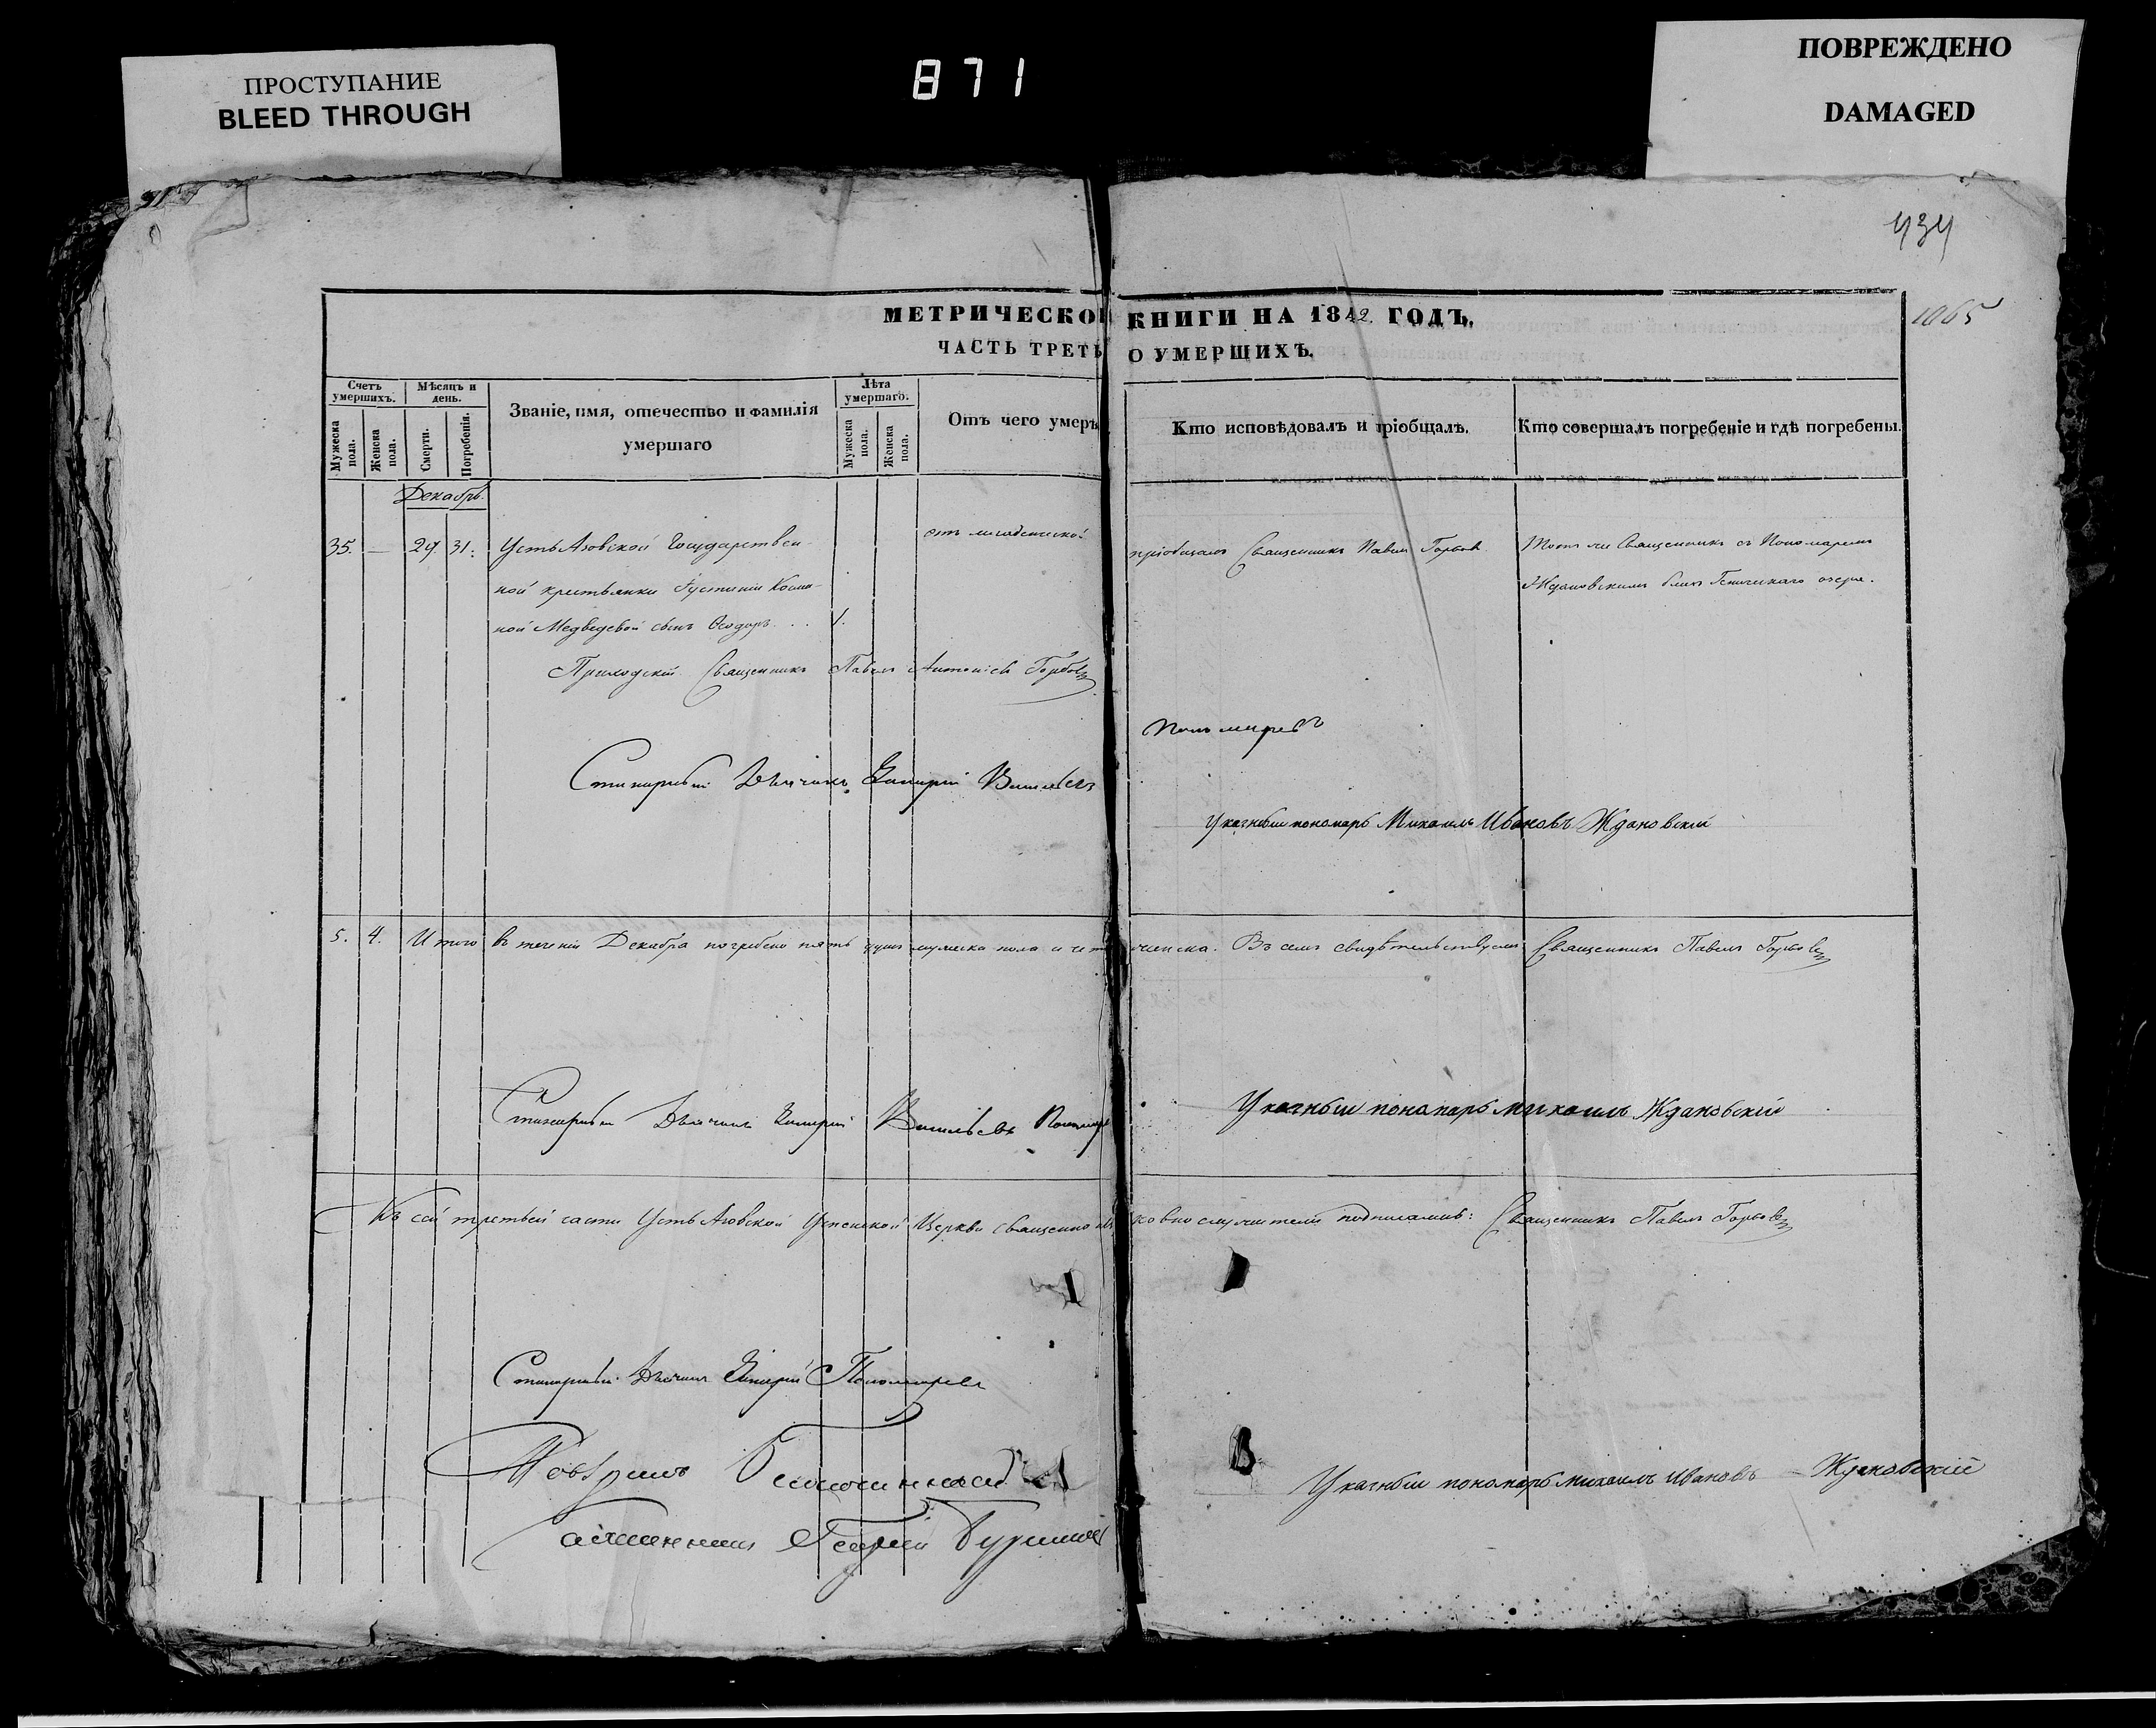 ПРОСТУПАНИЕ
BLEED THROUGH
871
ПОВРЕЖДЕНО
DAMAGED
434
1065
МЕТРИЧЕСКОЙ КНИГИ НА 1842. ГОДЪ,
ЧАСТЬ ТРЕТЬ О УМЕРШИХЪ.
Счетъ умершихъ.
Мѣсяцъ и день.
Званіе, имя, отечество и фамилія умершаго
Лѣта умершаго.
Отъ чего умеръ
Кто исповѣдовалъ и пріобщалъ.
Кто совершалъ погребеніе и гдѣ погребены.
Мужеска пола.
Женска пола.
Смерти.
Погребенія.
Мужеска пола.
Женска пола.
Декабрь.
35. — 29. 31. Усть Азовской Государствен
ной крестьянки Іустиніи Косми-
ной Медведевой сынъ Ѳеодоръ . . . 1.
отъ младенческой
пріобщалъ Священникъ Павелъ Горбов
Тотъ же Священникъ съ Пономаремъ
Ждановскимъ близ озера.
Приходскій Священникъ Павелъ Антоніевъ Горбовъ
Стихарный Дьячекъ Василевъ
Пономаревъ
Указный пономарь Михаилъ Ивановъ Ждановскій
5. 4. Итого въ теченіи Декабря погребено пять душъ мужеска пола и чет женска. Въ семъ свидѣтельствуемъ Священникъ Павелъ Горбовъ
Стихарный Дьячекъ Васильевъ Пономар
Указный пономарь михаилъ Ждановский
Къ сей третьей части Усть Азовской Успенской Церкви священно ц ковнослужители подписались: Священникъ Павелъ Горбовъ
Стихарный Дьячекъ Пономаревъ
Повѣрилъ Благочинный
Священникъ Георгій
Указный пономарь михаилъ Ивановъ Ждановский